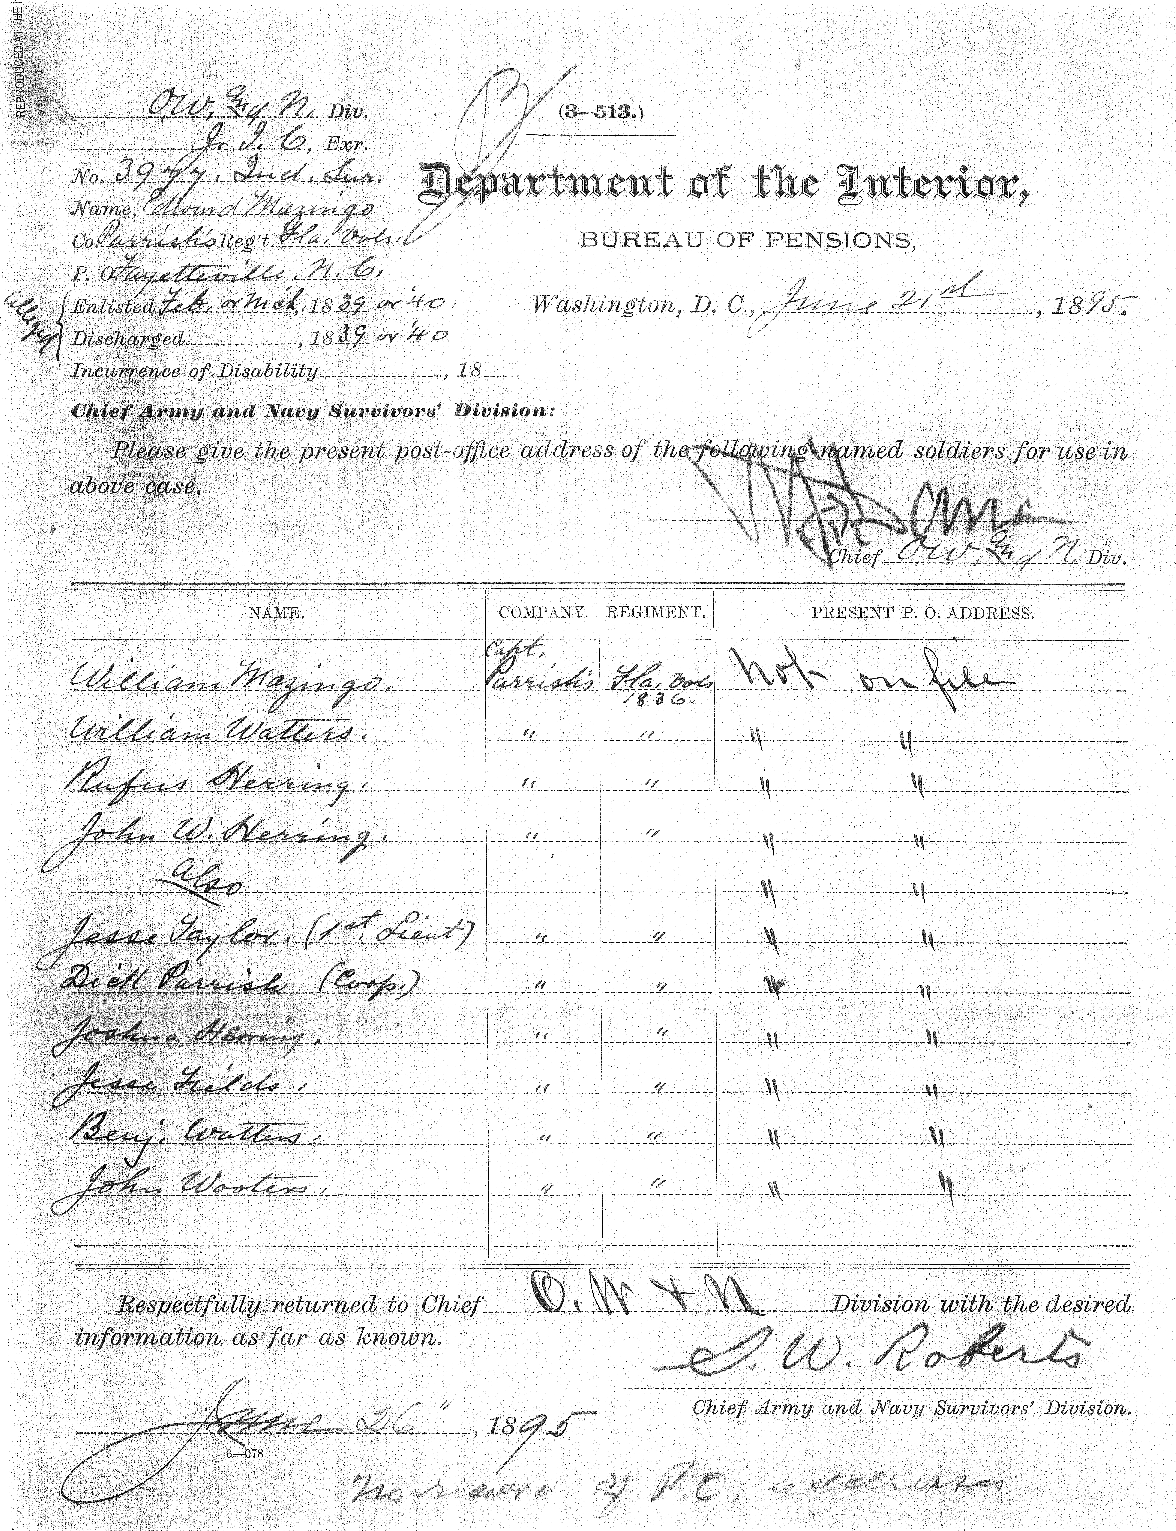 REPRODUCED AT THE
O.W. & N. Div.
J. I. C. Exr.
No. 3977. Ind. Sur.
Name, Mozingo
Co. Parrish's Reg't Fla. Vols.
P. O. Fayetteville, N. C.
Alleged
Enlisted Feb. or Mch, 1839 or '40
Discharged , 1839 or '40
Incurrence of Disability , 18
(3—513.)
Department of the Interior,
BUREAU OF PENSIONS,
Washington, D. C., June 21st , 1895.
Chief Army and Navy Survivors' Division:
Please give the present post-office address of the following named soldiers for use in
above case.
Chief O.W. & N. Div.
NAME. COMPANY. REGIMENT. PRESENT P. O. ADDRESS.
William Mozingo. Capt. Parrish's Fla. Vols 1836. Not on file
William Watters. " " " "
Rufus Herring. " " " "
John W. Herring. " " " "
Also " "
Jesse Taylor. (1st Lieut) " " " "
Dick Parrish (Coop.) " " " "
Joshua Herring. " " " "
Jesse Fields. " " " "
Benj. Watters. " " " "
John Wooters. " " " "
Respectfully returned to Chief O. W & N Division with the desired
information as far as known.
S. W. Roberts
Chief Army and Navy Survivors' Division.
June 26" , 1895
6—078
No record of P.O. address